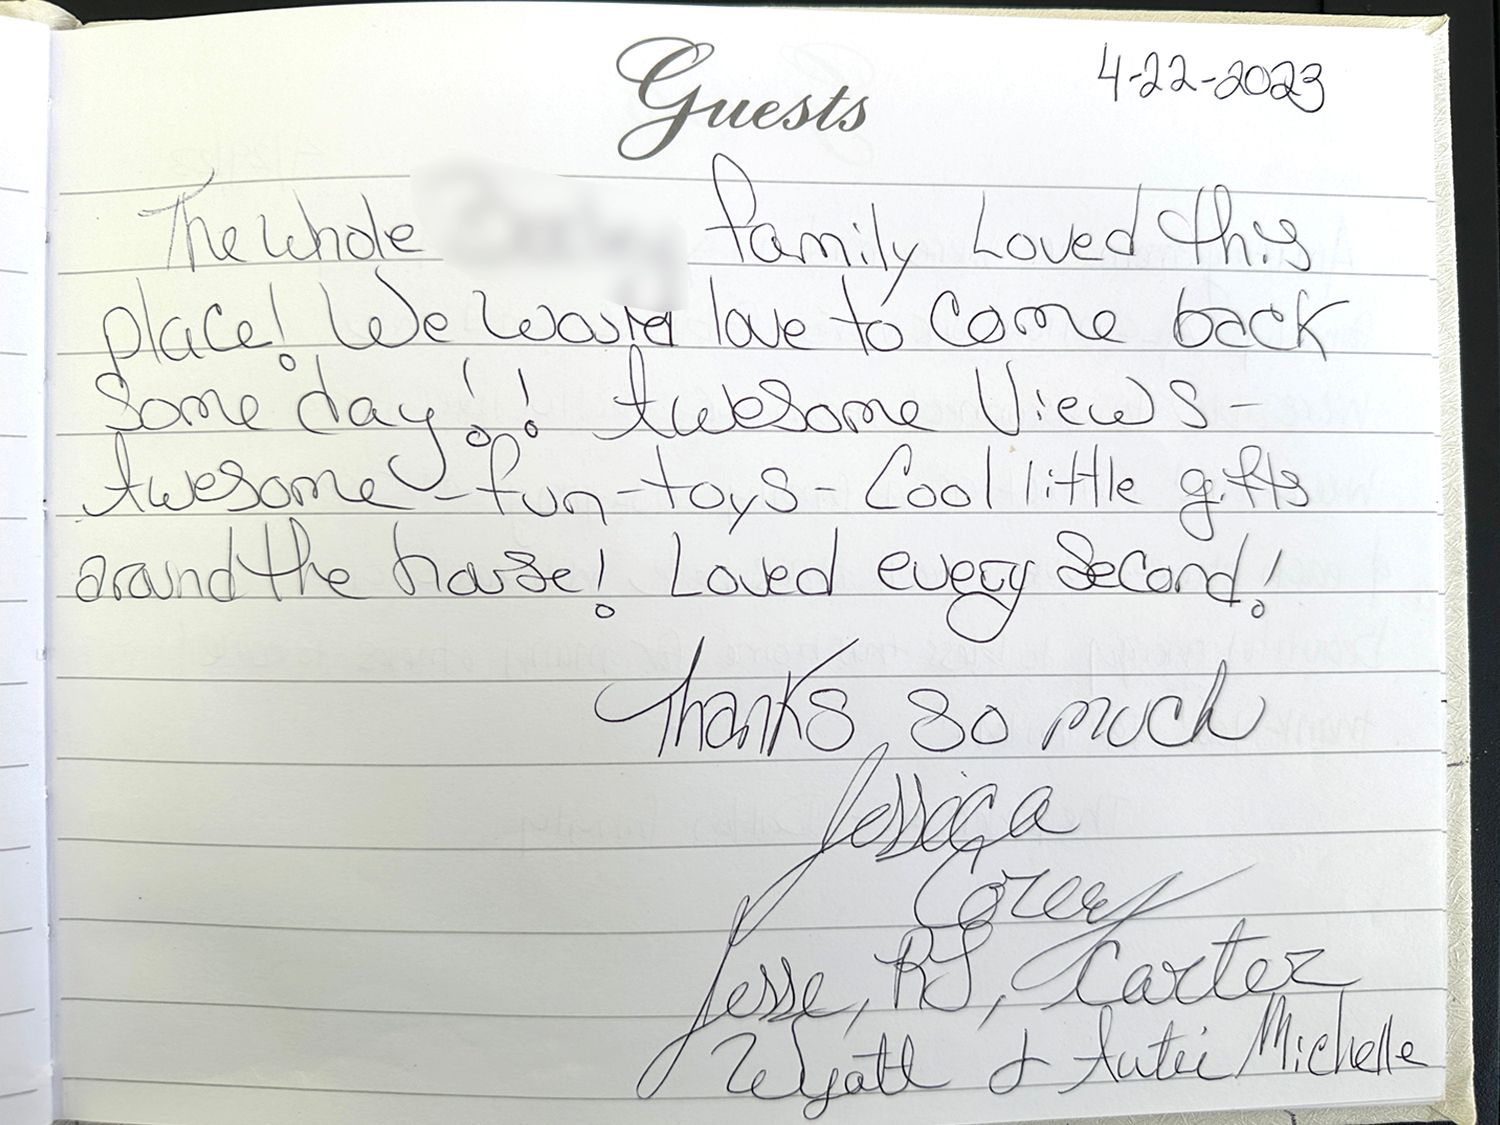 Guests
4-22-2023
The whole family Loved this
place! We would love to come back
some day!! Awesome Views-
Awesome-fun-toys-Cool little gifts
around the house! Loved every second!
Thanks so much
Jessica
Corey
Jesse, RJ, Carter
Wyatt & Autie Michelle